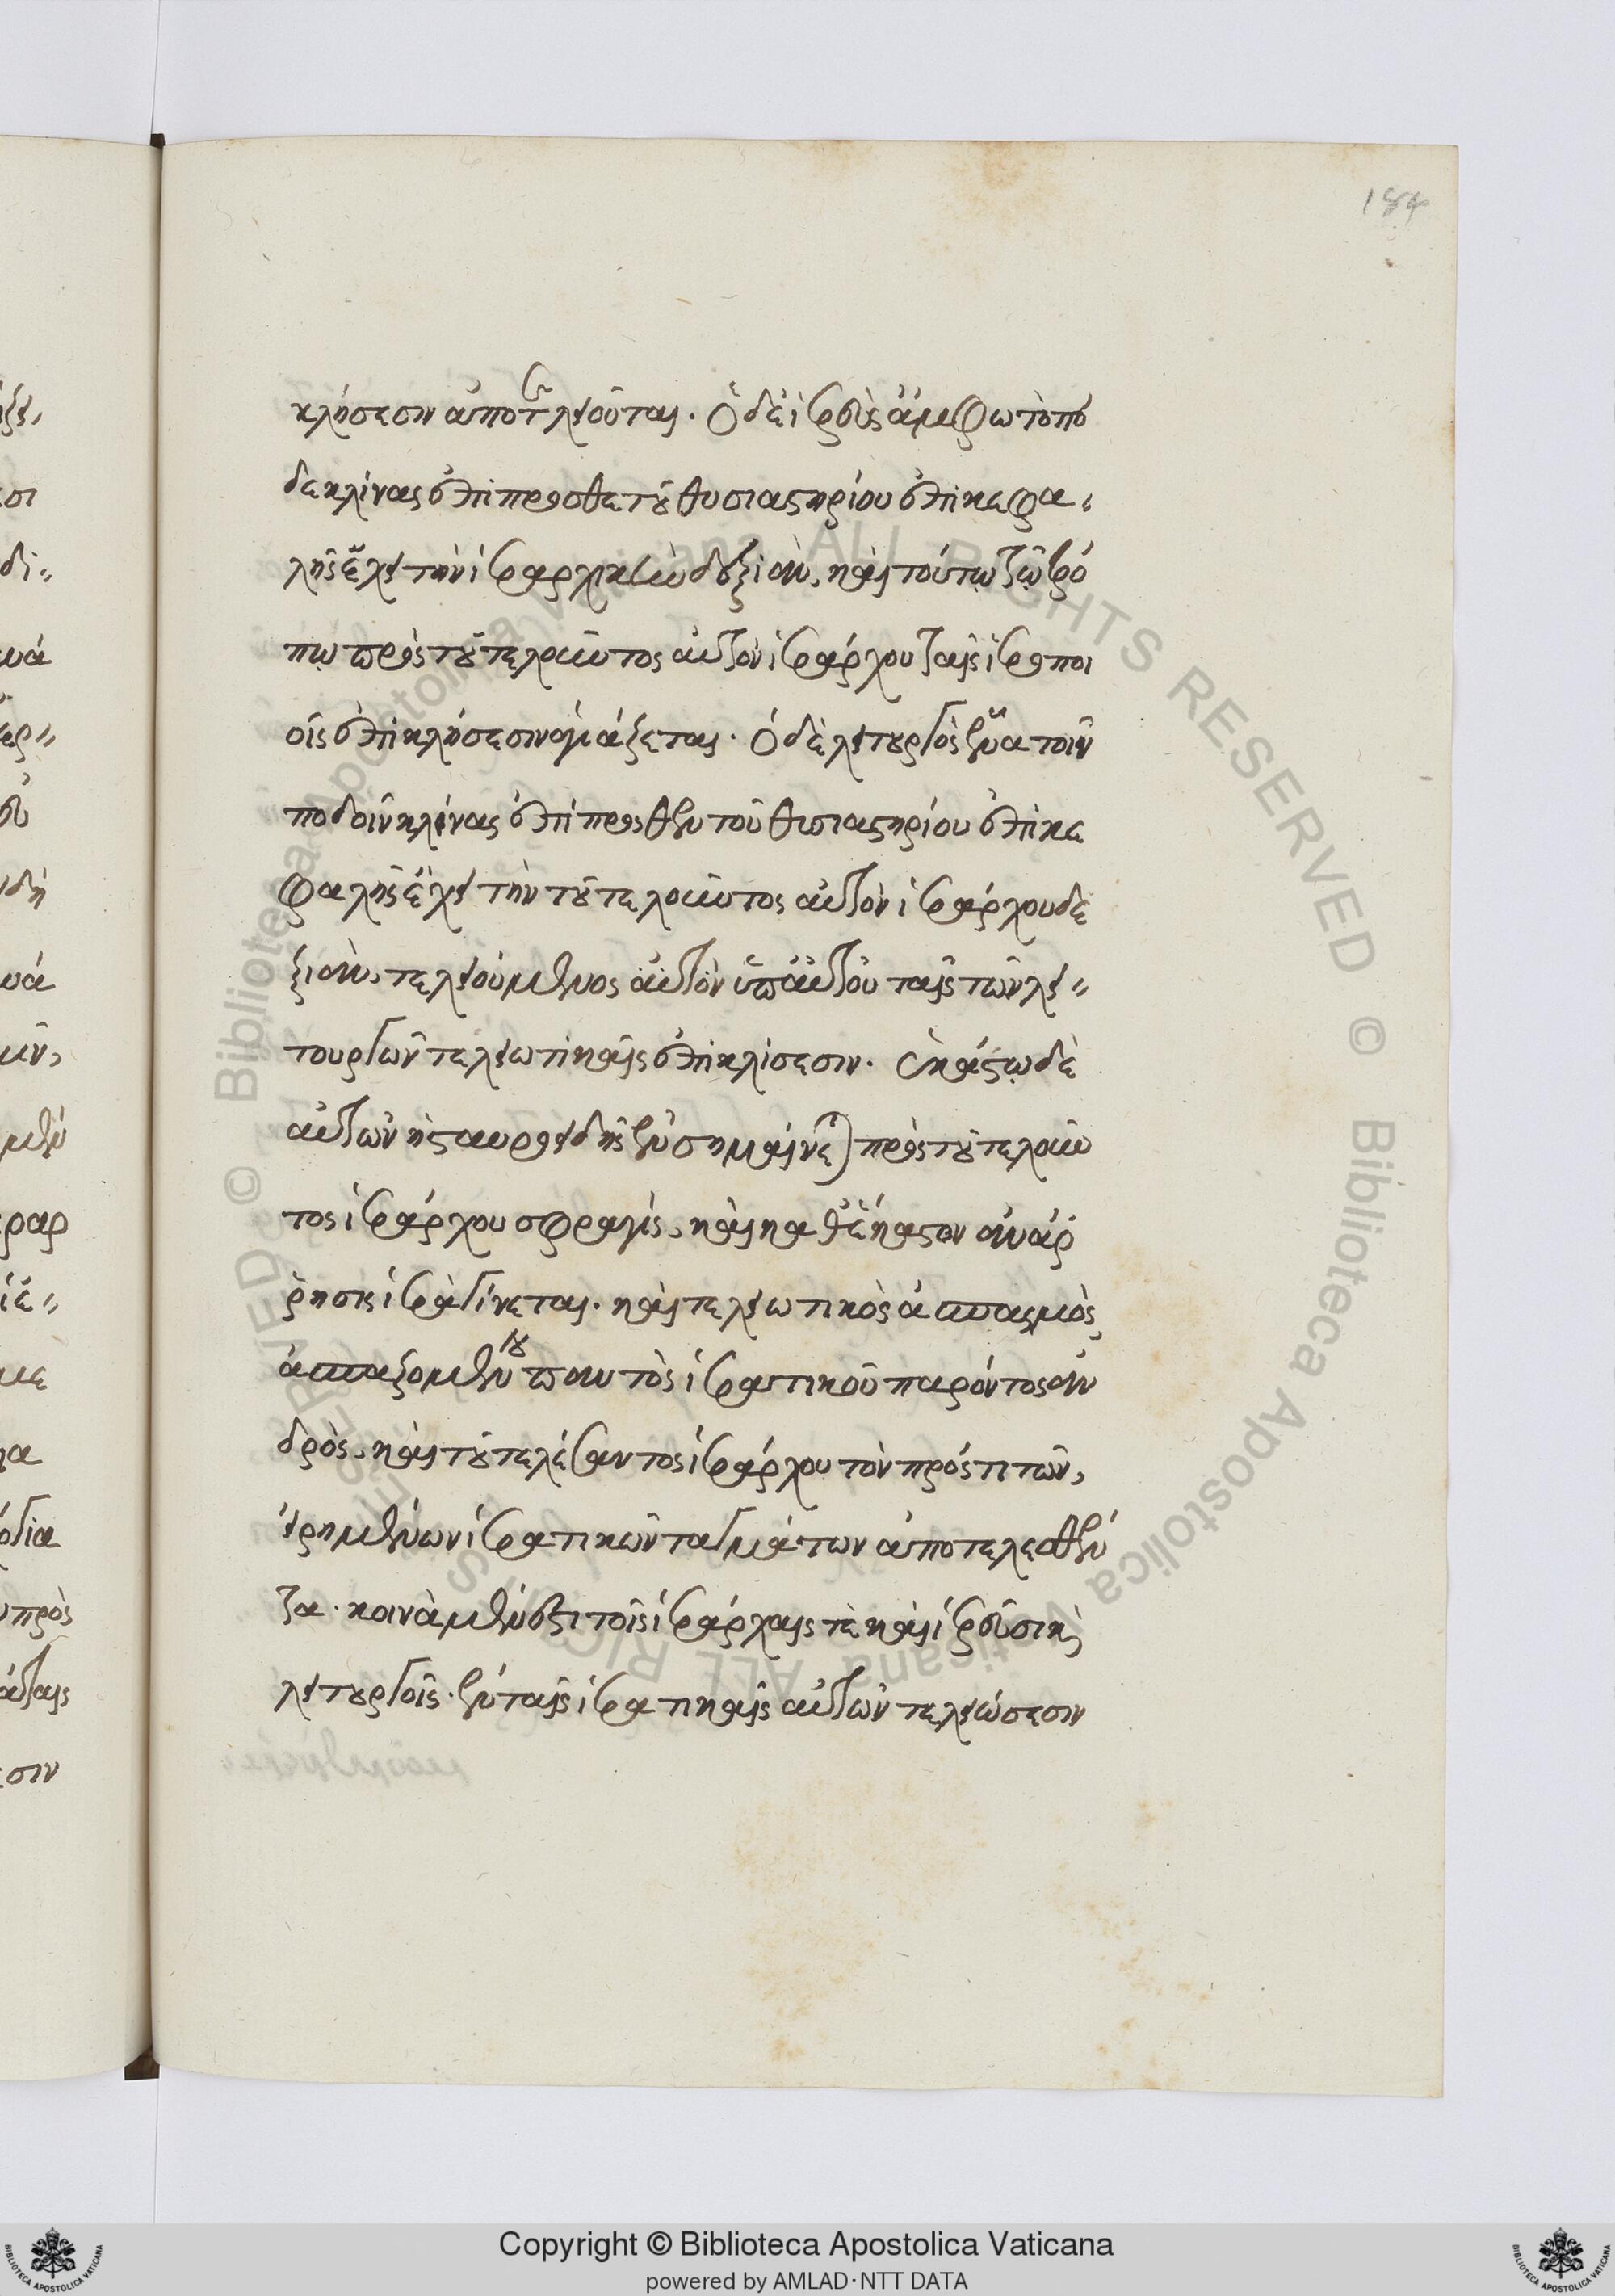 184
κλήσεσιν ἀποτελειοῦται. Ὁ δὲ ἱερεὺς ἄμφω τὼ πό
δε κλίνας ἐπίπροσθε τοῦ θυσιαστηρίου ἐπὶ κεφα-
λῆς ἔχει τὴν ἱεραρχικὴν δεξιὰν, καὶ τούτῳ τῷ τρό
πῳ πρὸς τοῦ τελοῦντος αὐτὸν ἱεράρχου ταῖς ἱεροποι
οῖς ἐπικλήσεσιν ἁγιάζεται. Ὁ δὲ λειτουργὸς ἕνα τοῖν
ποδοῖν κλίνας ἐπίπροσθεν τοῦ θυσιαστηρίου ἐπὶ κε
φαλῆς ἔχει τὴν τοῦ τελοῦντος αὐτὸν ἱεράρχου δε
ξιὰν, τελειούμενος αὐτὸν ὑπ' αὐτοῦ ταῖς τῶν λει-
τουργῶν τελειωτικαῖς ἐπικλίσεσιν. ἑκάστῳ δὲ
αὐτῶν ἡ σταυροειδὴς ἐνσημαίνεται πρὸς τοῦ τελοῦν
τος ἱεράρχου σφραγὶς, καὶ καθ' ἕκαστον ἀνάρ
ρησις ἱερὰ γίνεται. καὶ τελειωτικὸς ἀσπασμὸς
ἀσπαζομένου παντὸς ἱερατικοῦ παρόντος ἀν
δρὸς, καὶ τοῦ τελέσαντος ἱεράρχου τὸν πρός τι τῶν,
εἰρημένων ἱερατικῶν ταγμάτων ἀποτελεσθέν
τα. κοινὰ μὲν ἐστι τοῖς ἱεράρχαις τὲ καὶ ἱερεῦσι καὶ
λειτουργοῖς. ἐν ταῖς ἱερατικαῖς αὐτῶν τελειώσεσιν
© Biblioteca Apostolica Vaticana ALL RIGHTS RESERVED © Biblioteca Apostolica Vaticana ALL RIGHTS RESERVED
Copyright © Biblioteca Apostolica Vaticana
powered by AMLAD·NTT DATA